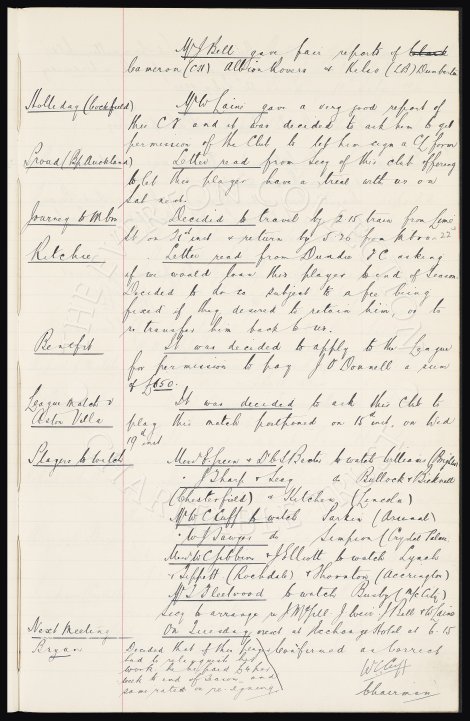 Mr J Bell gave fair reports of
Cameron (CH) Albion Rovers & Kelso (LB) Dumbarton
Holleday (Cockfield) Mr W Sains gave a very good report of
this C F and it was decided to ask him to get
permission of the Club to let him sign a CL form
Proud (Bp Auckland) Letter read from Secy of this club offering
to let this player have a trial with us on
Sat next.
Journey to M'bro Decided to travel by 2.15 train from Lime
St on 21st inst & return by 5.30 from M'bro on 22nd
Ritchie Letter read from Dundee F C asking
if we would loan this player to end of Season
Decided to do so subject to a fee being
fixed if they desired to retain him, or to
re transfer him back to us.
Benefit It was decided to apply to the League
for permission to pay J O'Donnell a sum
of £650.
League Match v It was decided to ask this Club to
Aston Villa play this match postponed on 15th inst, on Wed
19th inst
Players to Watch Messrs E Green & Dr C S Baxter to watch Williams (Brighton)
" J Sharp & Secy do Bullock & Bicknell
(Chesterfield) & Kitchen (Lincoln)
Mr W C Cuff to watch Parkin (Arsenal)
" W J Sawyer do Simpson (Crystal Palace
Messrs W C Gibbins & J Elliott to watch Lynch
& Tippett (Rochdale) & Thornton (Accrington)
Mr T Fleetwood to watch Busby (M/c City)
Secy to arrange re J McGill J Weir J Bell & W Sains
Next Meeting On Tuesday next at Exchange Hotel at 6-15
Bryan Decided that if this player
had to relinquish his
work he be paid
week to end of season and
same rates on re-signing
Confirmed as Correct
W C Cuff
Chairman